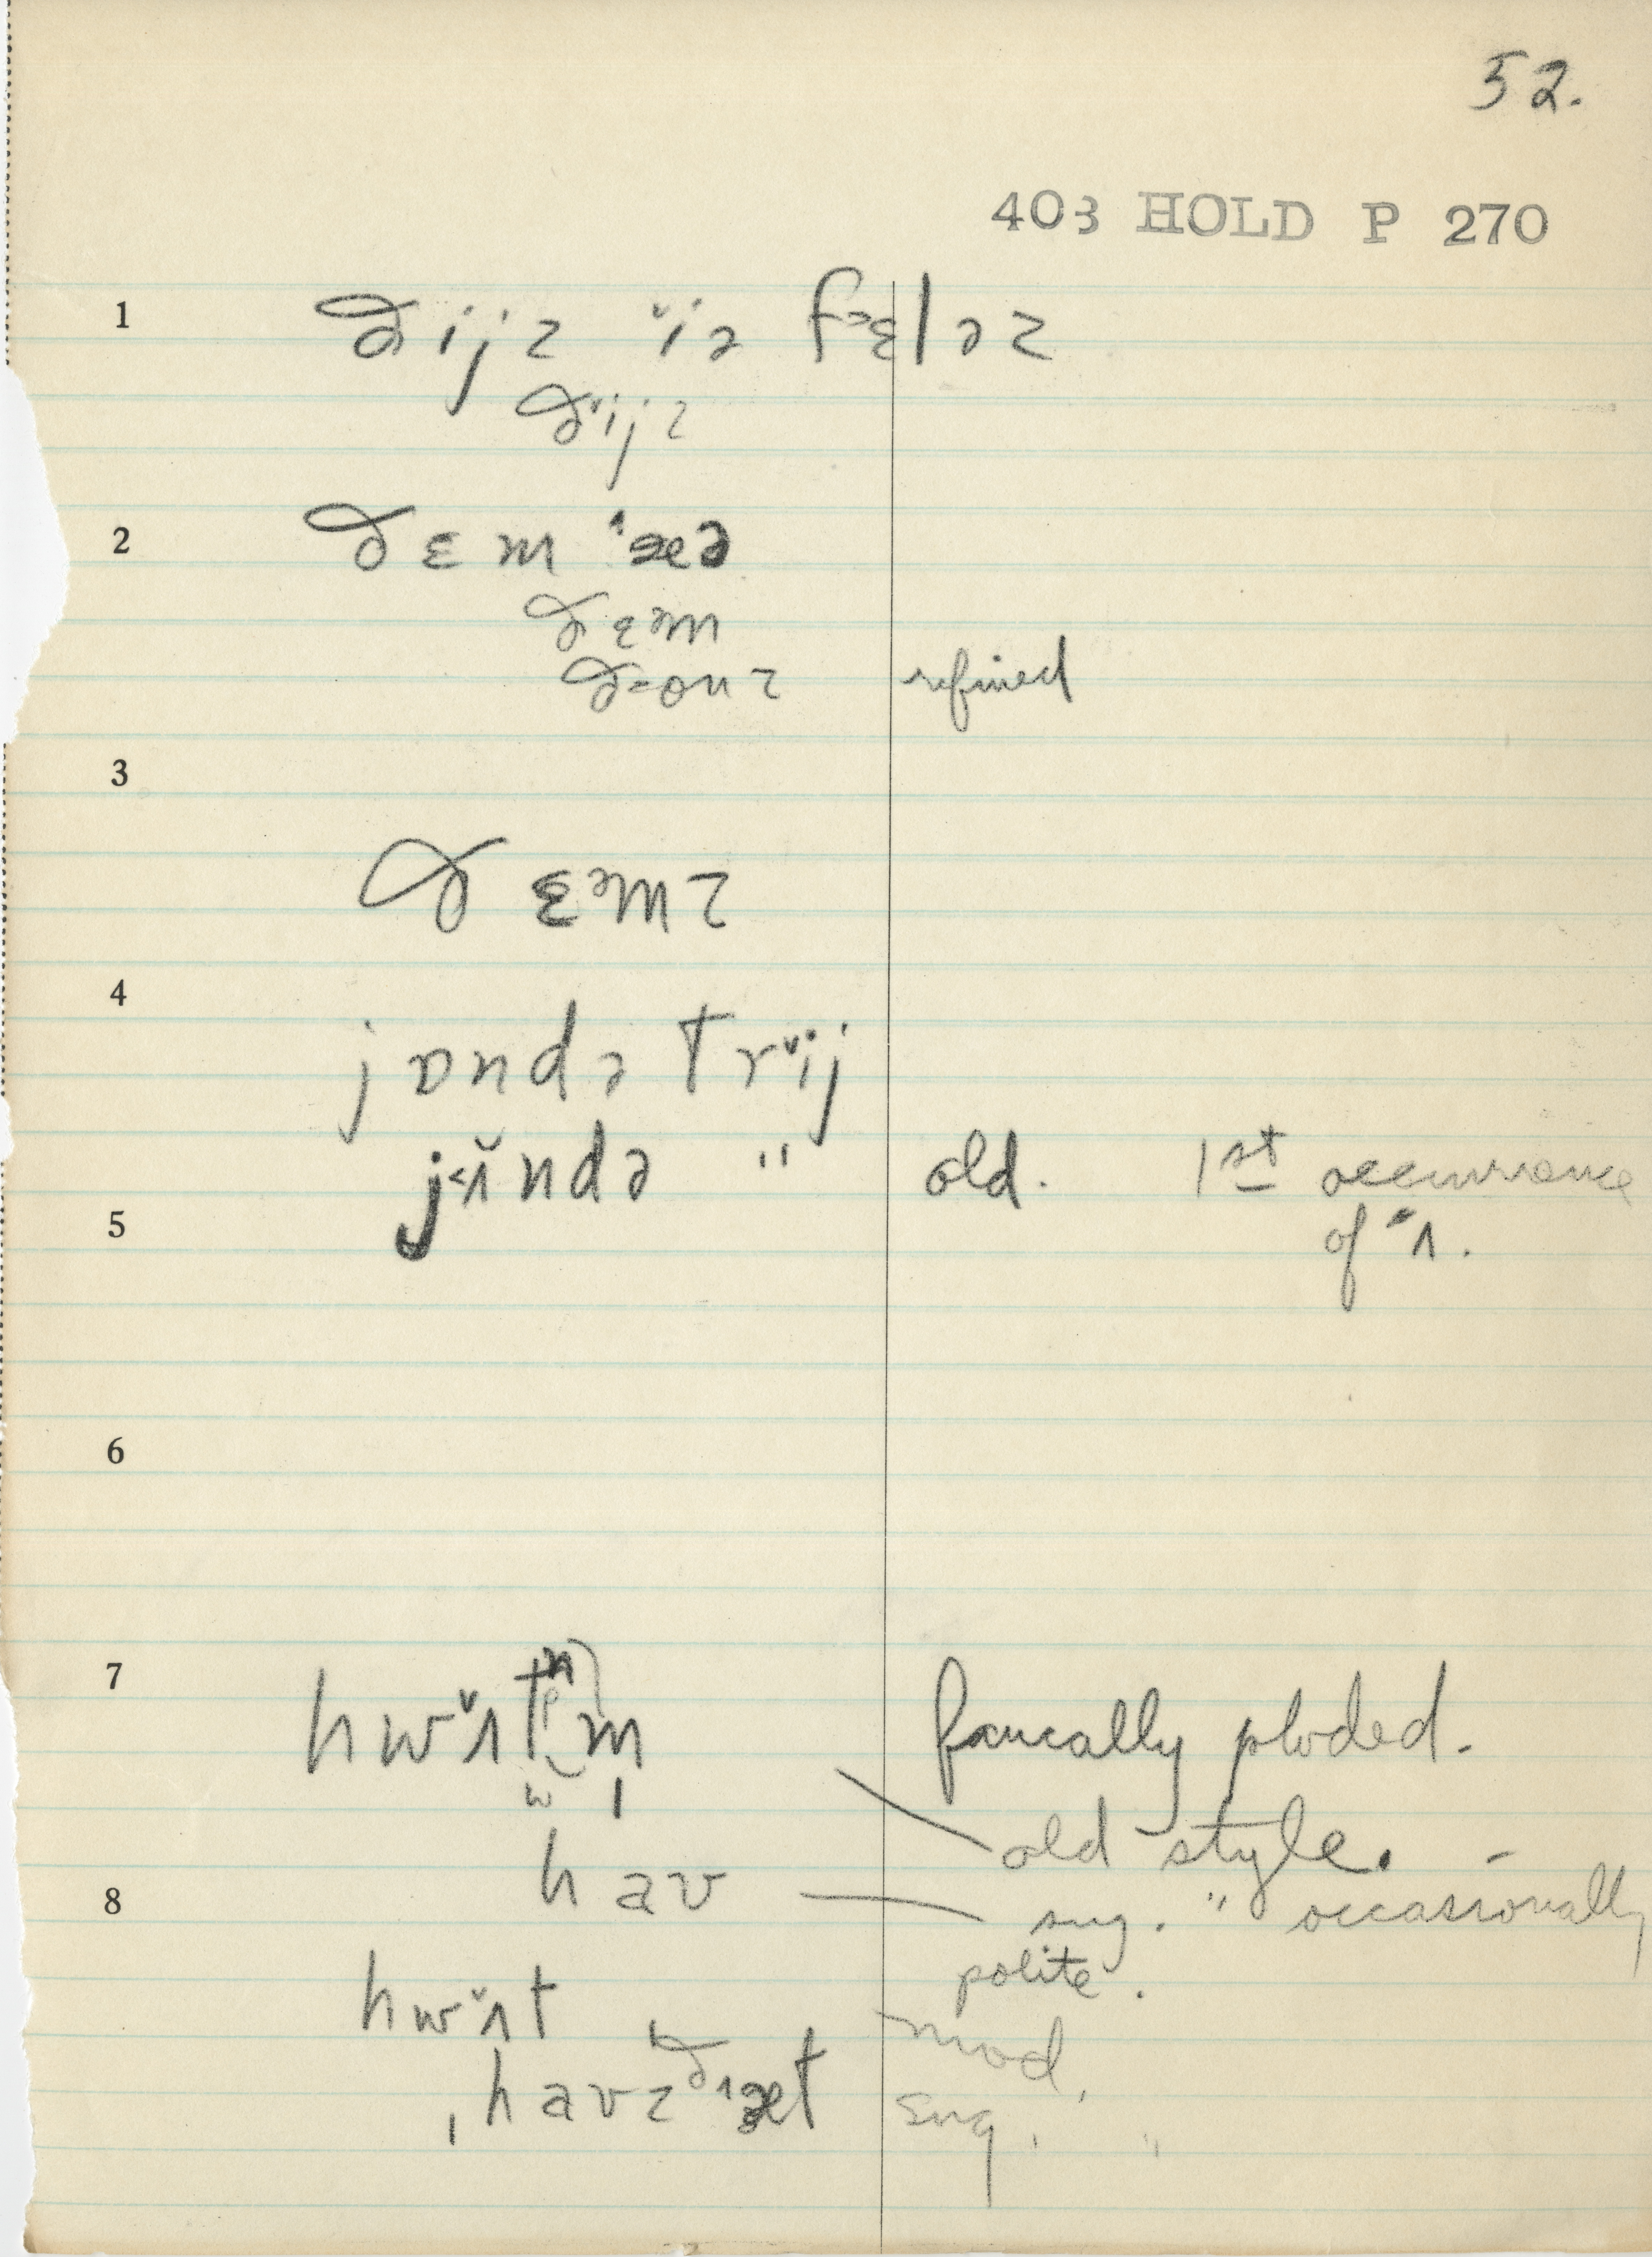 52.
403 HOLD P 270
1 ðijz ˇiə fɛləz
ðˇijz
2 ðɛm ˆæə
ðɛᵊm
refined
3
ðɛᵊmz
4
jɒndə trˇij
j˂ʌ̌ndə " old. 1st occurrence
5 of ˇʌ.
6
7 hwˇʌt m̩ faucally ploded.
old style.
hav
8 sug. " occasionally
polite.
hwˇʌt mod.
ˌhavz ðˆæt sug. "